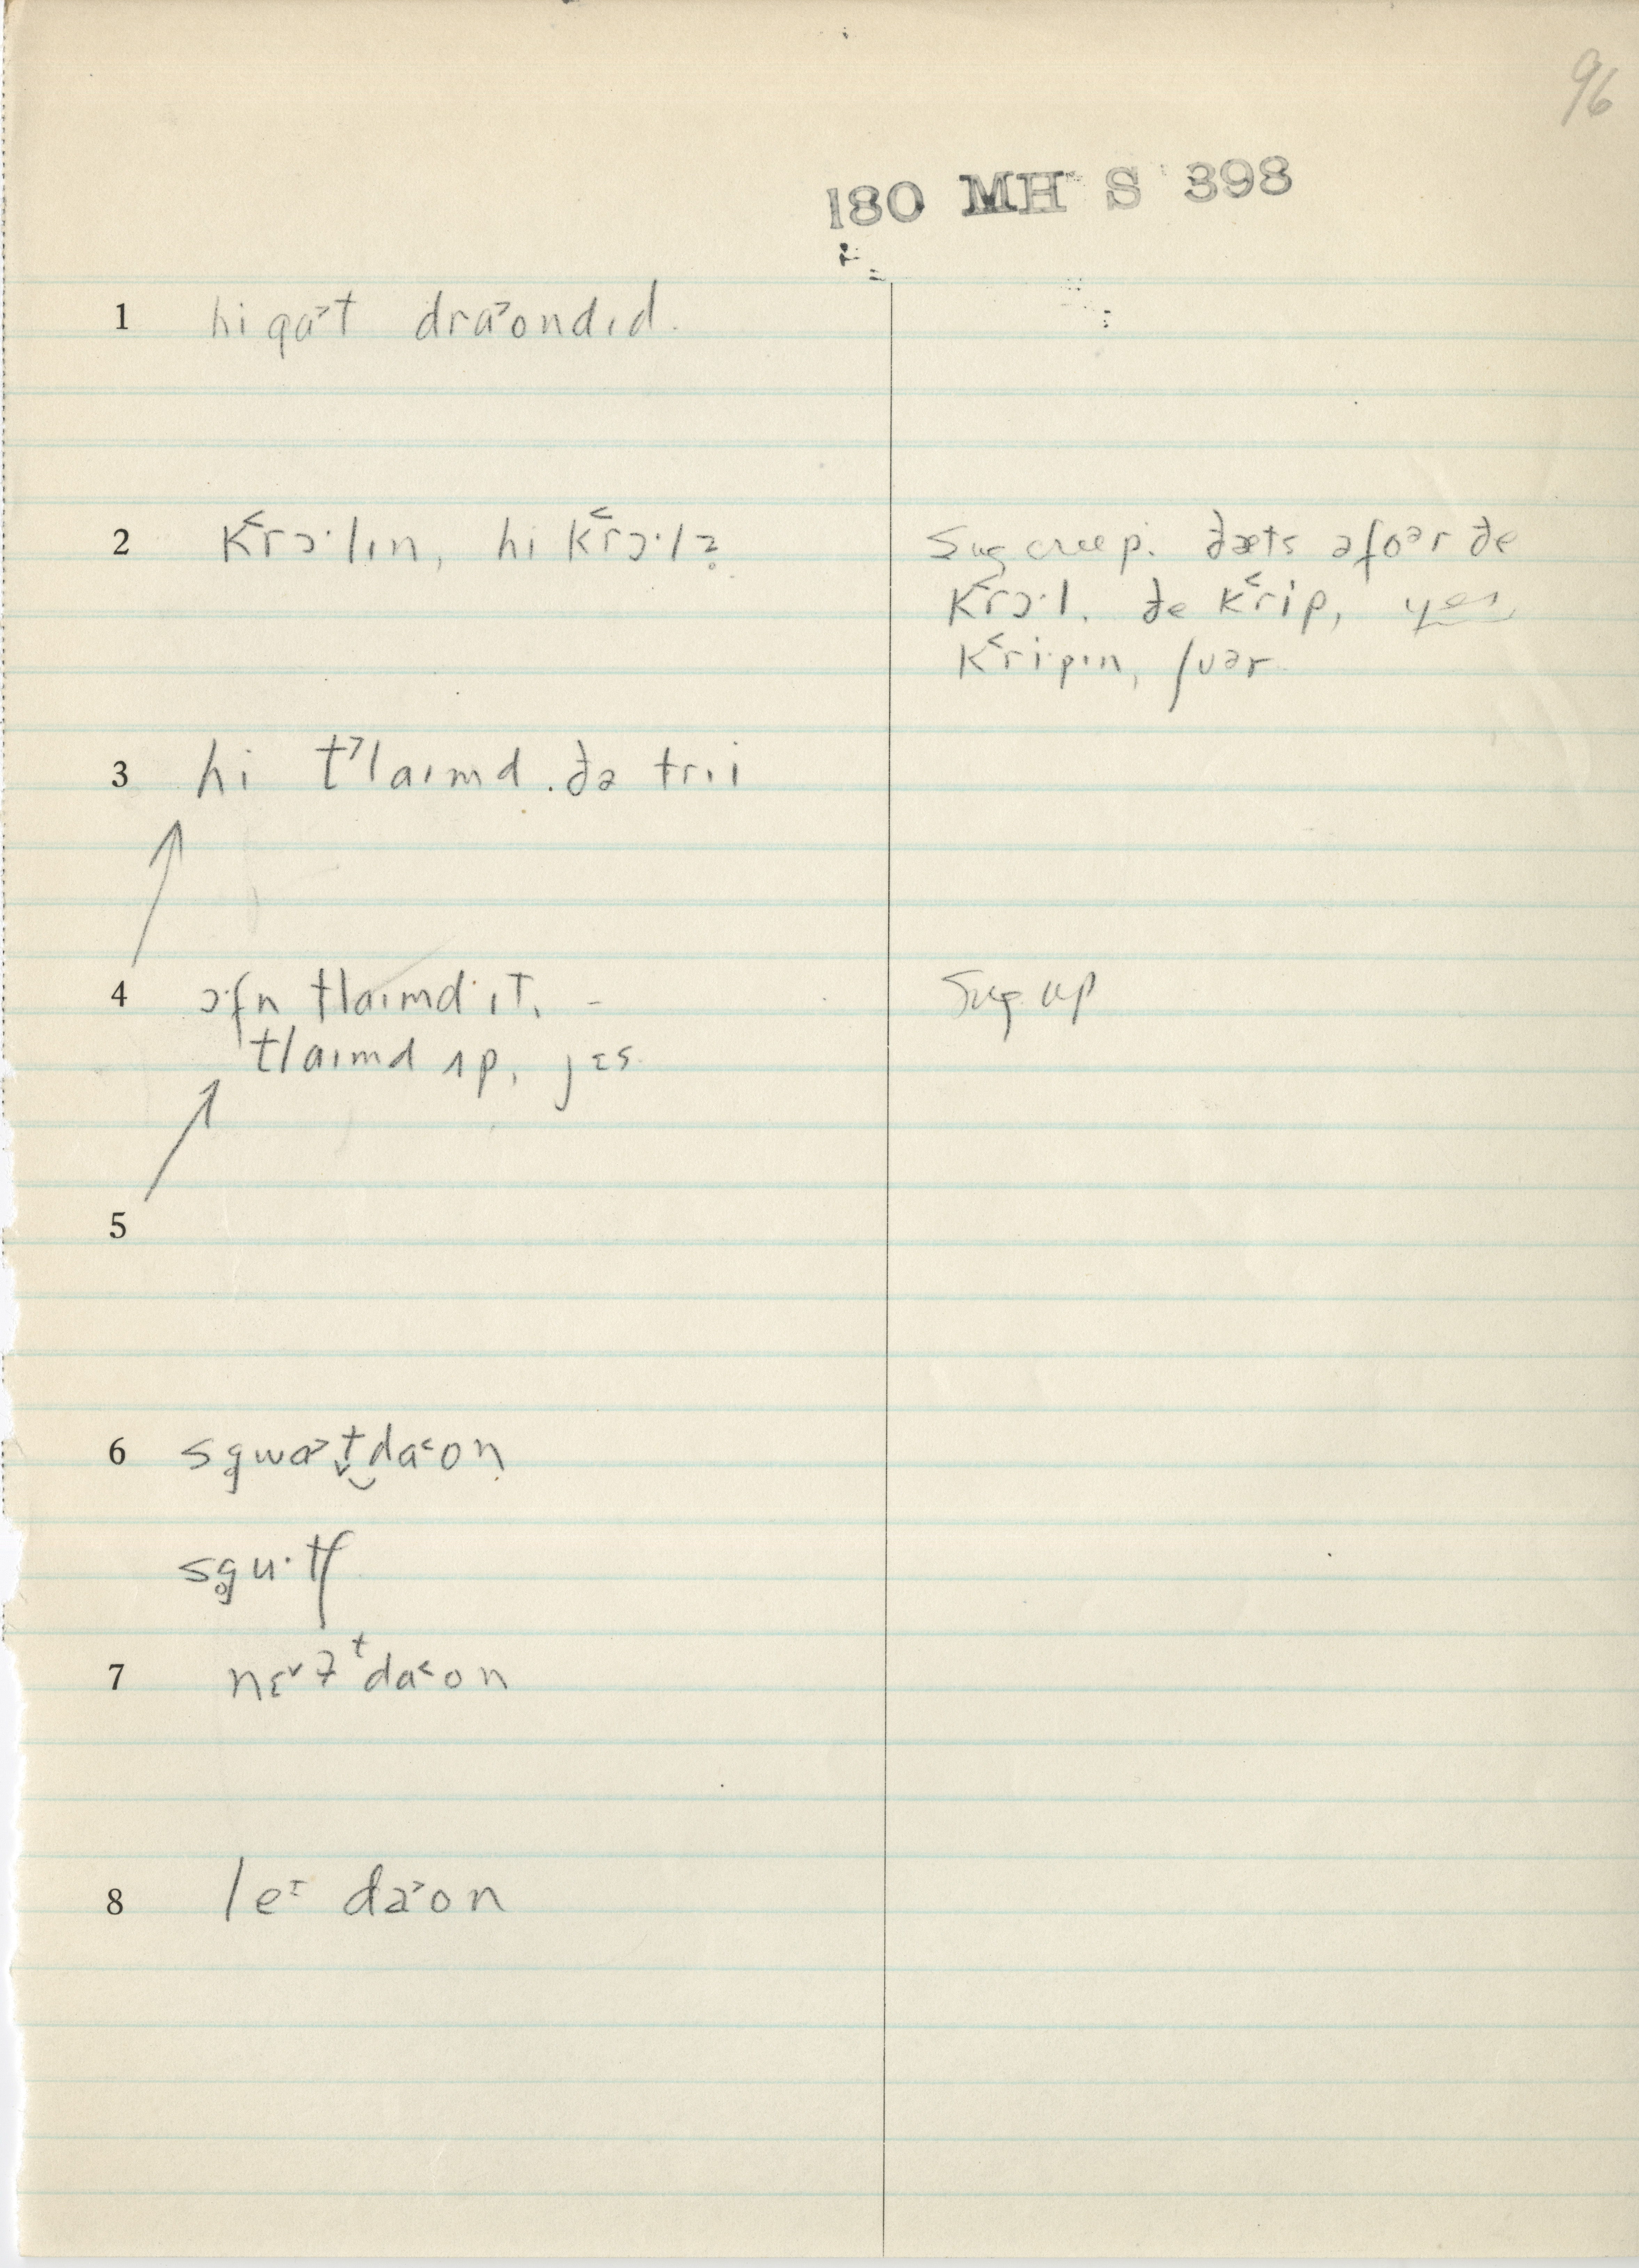 96
180 MH S 398
1 hi gɑ˃t drɑ˃ondɪd.
2 k˂rɔ·lɪn, hi k˂rɔ·lz̥
Sug creep. ðæts əfoᵊr ðe
k˂rɔ·l. ðe k˂rip, yes,
k˂ri·pɪn, ʃuər
3 hi t˃laɪmd ðə trɪi
4 ɔ·fn tlaɪmd ɪt. –
tlaɪmd ʌp, jɛs
Sug up
5
6 sg̥wɑ˃t̬‿da˂on
sg̥u·tʃ
7 nɛ˅lᵗda˂on
8 leᶦ da˃on